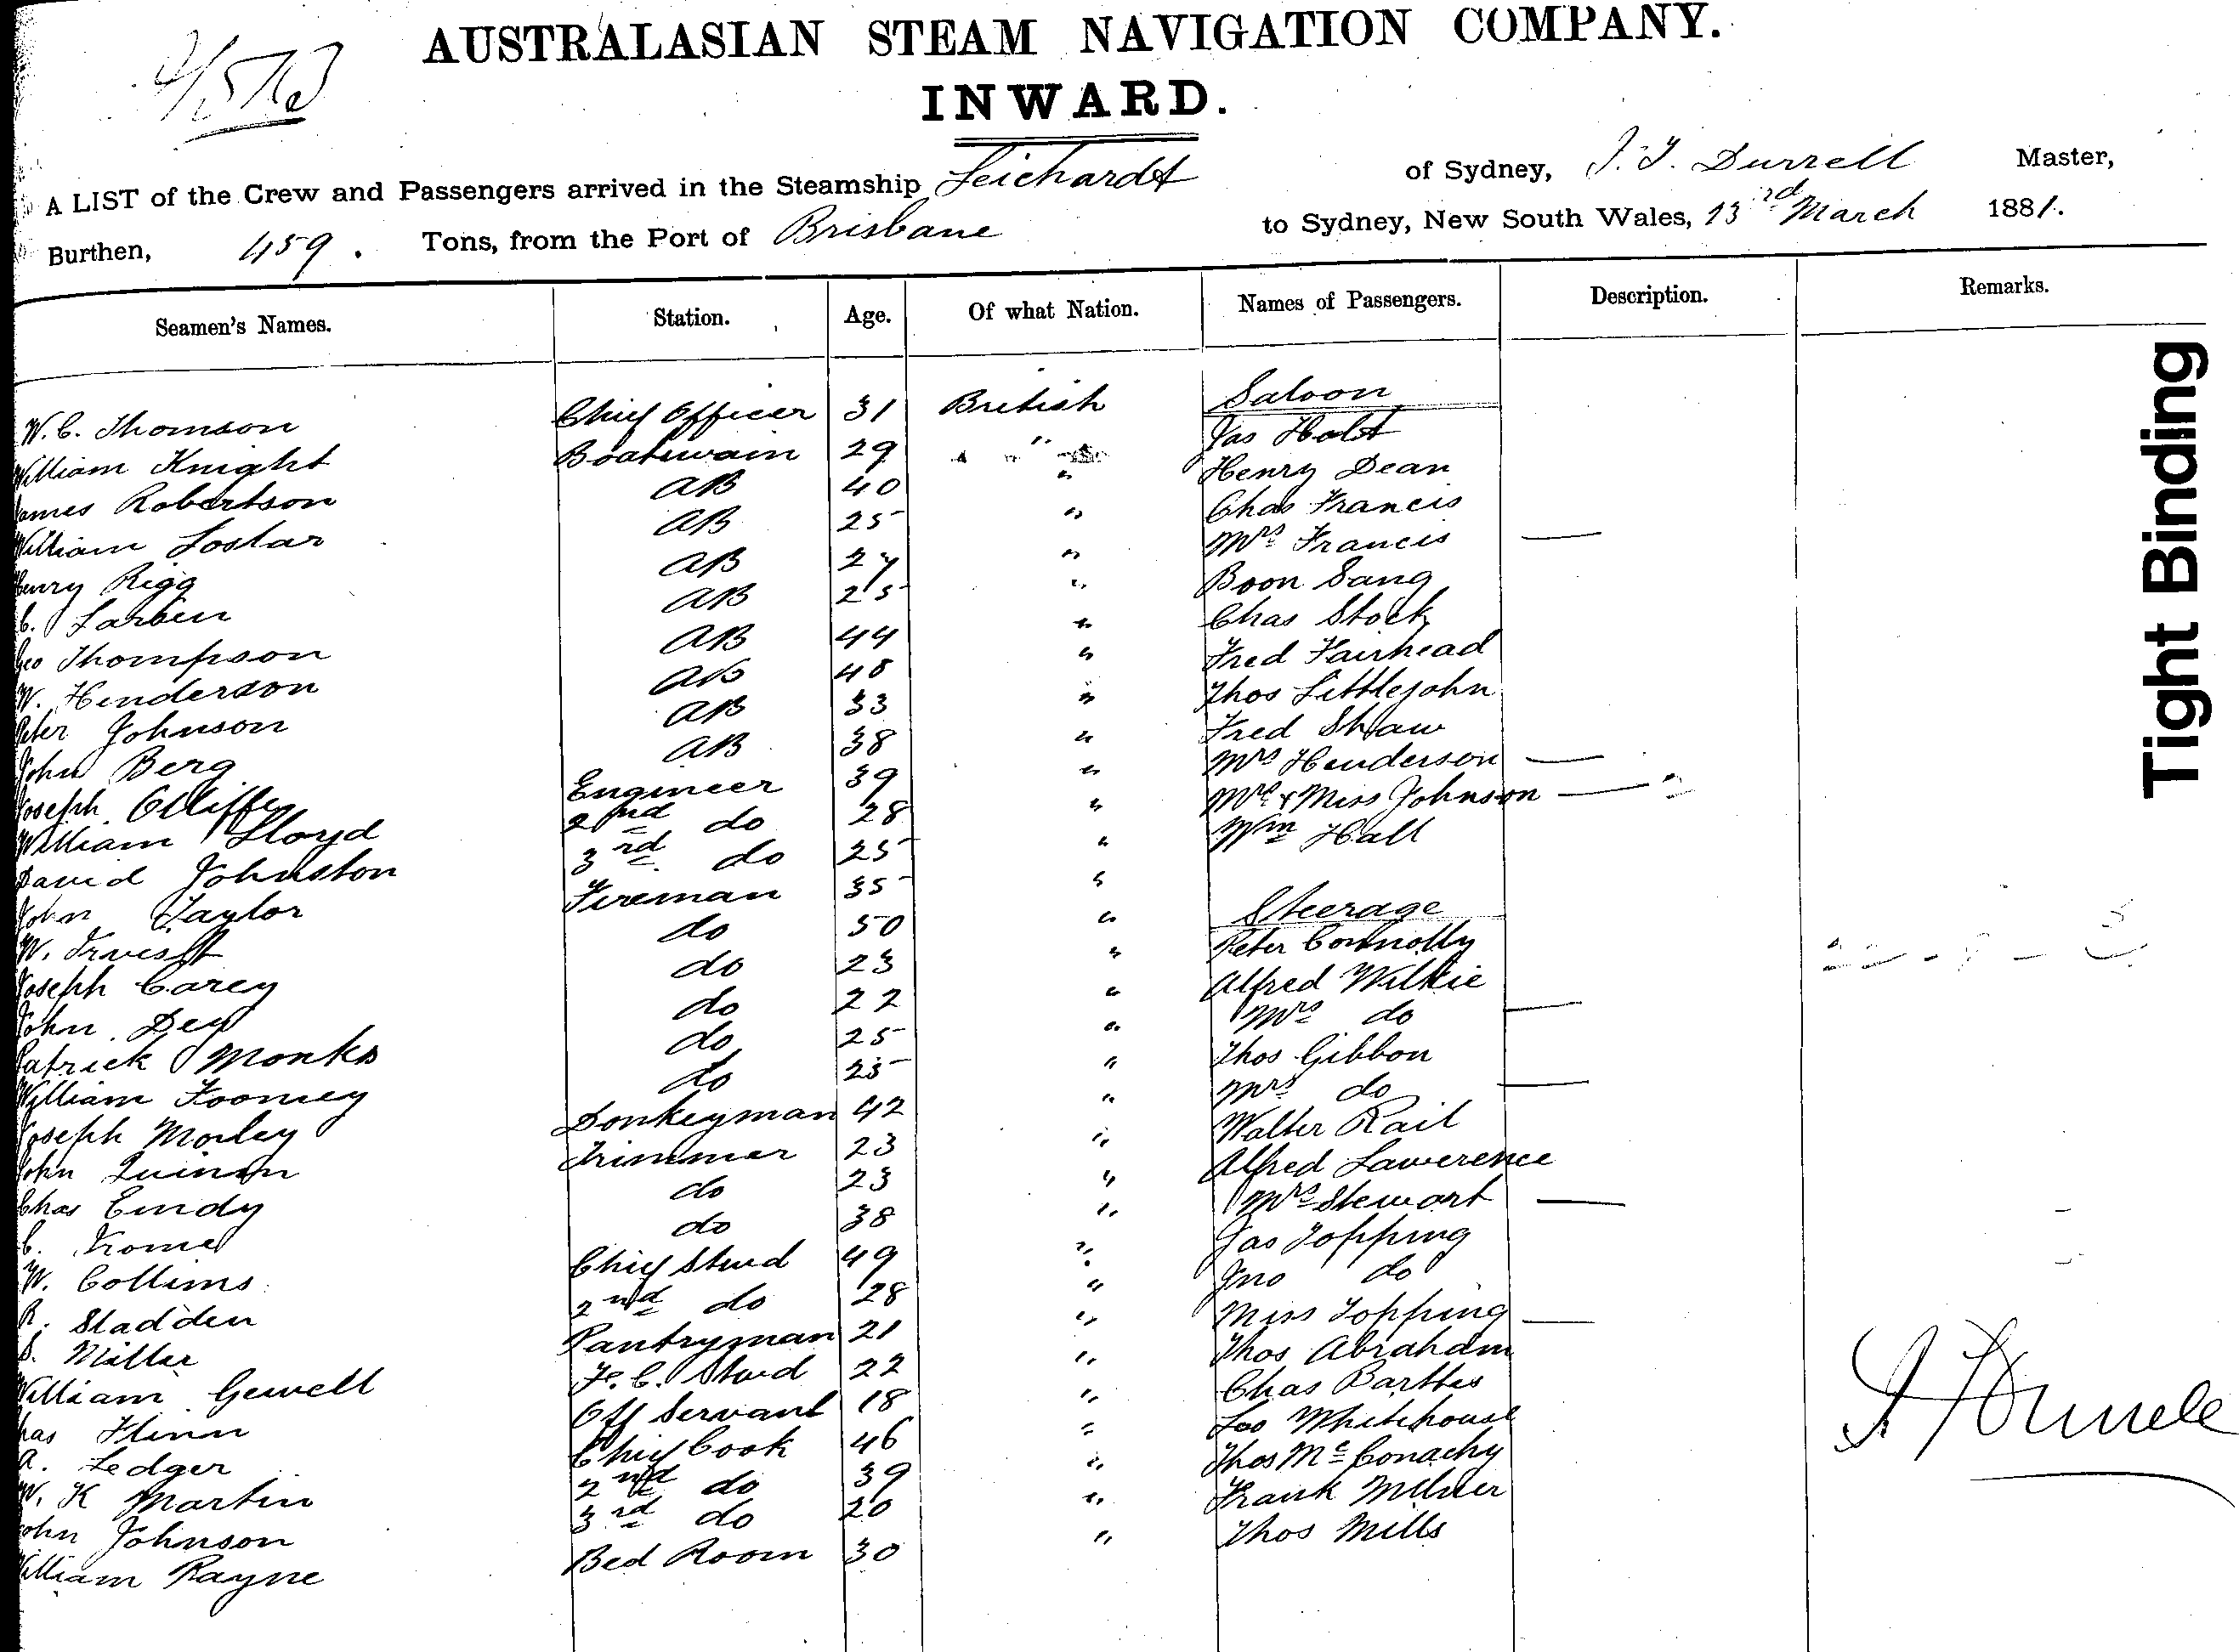 AUSTRALASIAN STEAM NAVIGATION COMPANY.
INWARD.
A LIST of the Crew and Passengers arrived in the Steamship Leichardt of Sydney, J. T. Durrell Master,
Burthen, 459. Tons, from the Port of Brisbane to Sydney, New South Wales, 13rd March 1881.
Seamen's Names. Station. Age. Of what Nation. Names of Passengers. Description. Remarks.
W. C. Thomson Chief Officer 31 British Saloon
William Knight Boatswain 29 " Jas Holt
James Robertson AB 40 " Henry Dean
William AB 25 " Chas Francis
Henry Rigg AB 27 " Mrs Francis —
C. Larsen AB 25 " Boon Sang
Geo Thompson AB 44 " Chas Stock
W. Henderson AB 48 " Fred Fairhead
Peter Johnson AB 33 " Thos Littlejohn
John Berg AB 38 " Fred Shaw
Joseph Olliffe Engineer 39 " Mrs Henderson —
William Lloyd 2nd do 28 " Mrs & Miss Johnson —
David Johnston 3rd do 25 " Wm Hall
John Taylor Fireman 35 "
W. do 50 " Steerage
Joseph Carey do 23 " Peter Connolly
John Dey do 22 " Alfred Wilkie
Patrick Monks do 25 " Mrs do —
William do 25 " Thos Gibbon
Joseph Morley Donkeyman 42 " Mrs do —
John Quinan Trimmer 23 " Walter Rail
Chas Eindy do 23 " Alfred Lawerence
C. Krome do 38 " Mrs Stewart —
W. Collims Chief Stwd 49 " Jas Topping
R. Sladden 2nd do 28 " Jno do
S. Miller Pantryman 21 " Miss Topping —
William Gewell F. C. Stwd 22 " Thos Abraham
Chas Flinn Off Servant 18 " Chas Barttes
A. Ledger Chief Cook 46 " Whitehouse
W. K Martin 2nd do 39 " Thos McConachy
John Johnson 3rd do 20 " Frank Milner
William Rayne Bed Room 30 " Thos Mills
Tight Binding